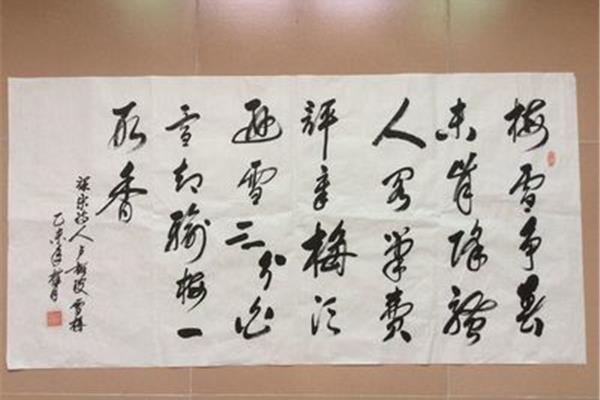 梅雪争春
未肯降骚
人阁筆费
評章梅须
逊雪三分白
雪却输梅一
段香
宋诗人卢梅坡雪梅
乙未年月